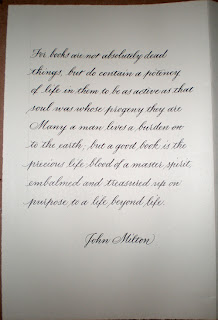 For books are not absolutely dead
things, but do contain a potency
of life in them to be as active as that
soul was whose progeny they are
Many a man lives a burden on
to the earth, but a good book is the
precious life blood of a master spirit,
embalmed and treasured up on
purpose to a life beyond life.
John Milton